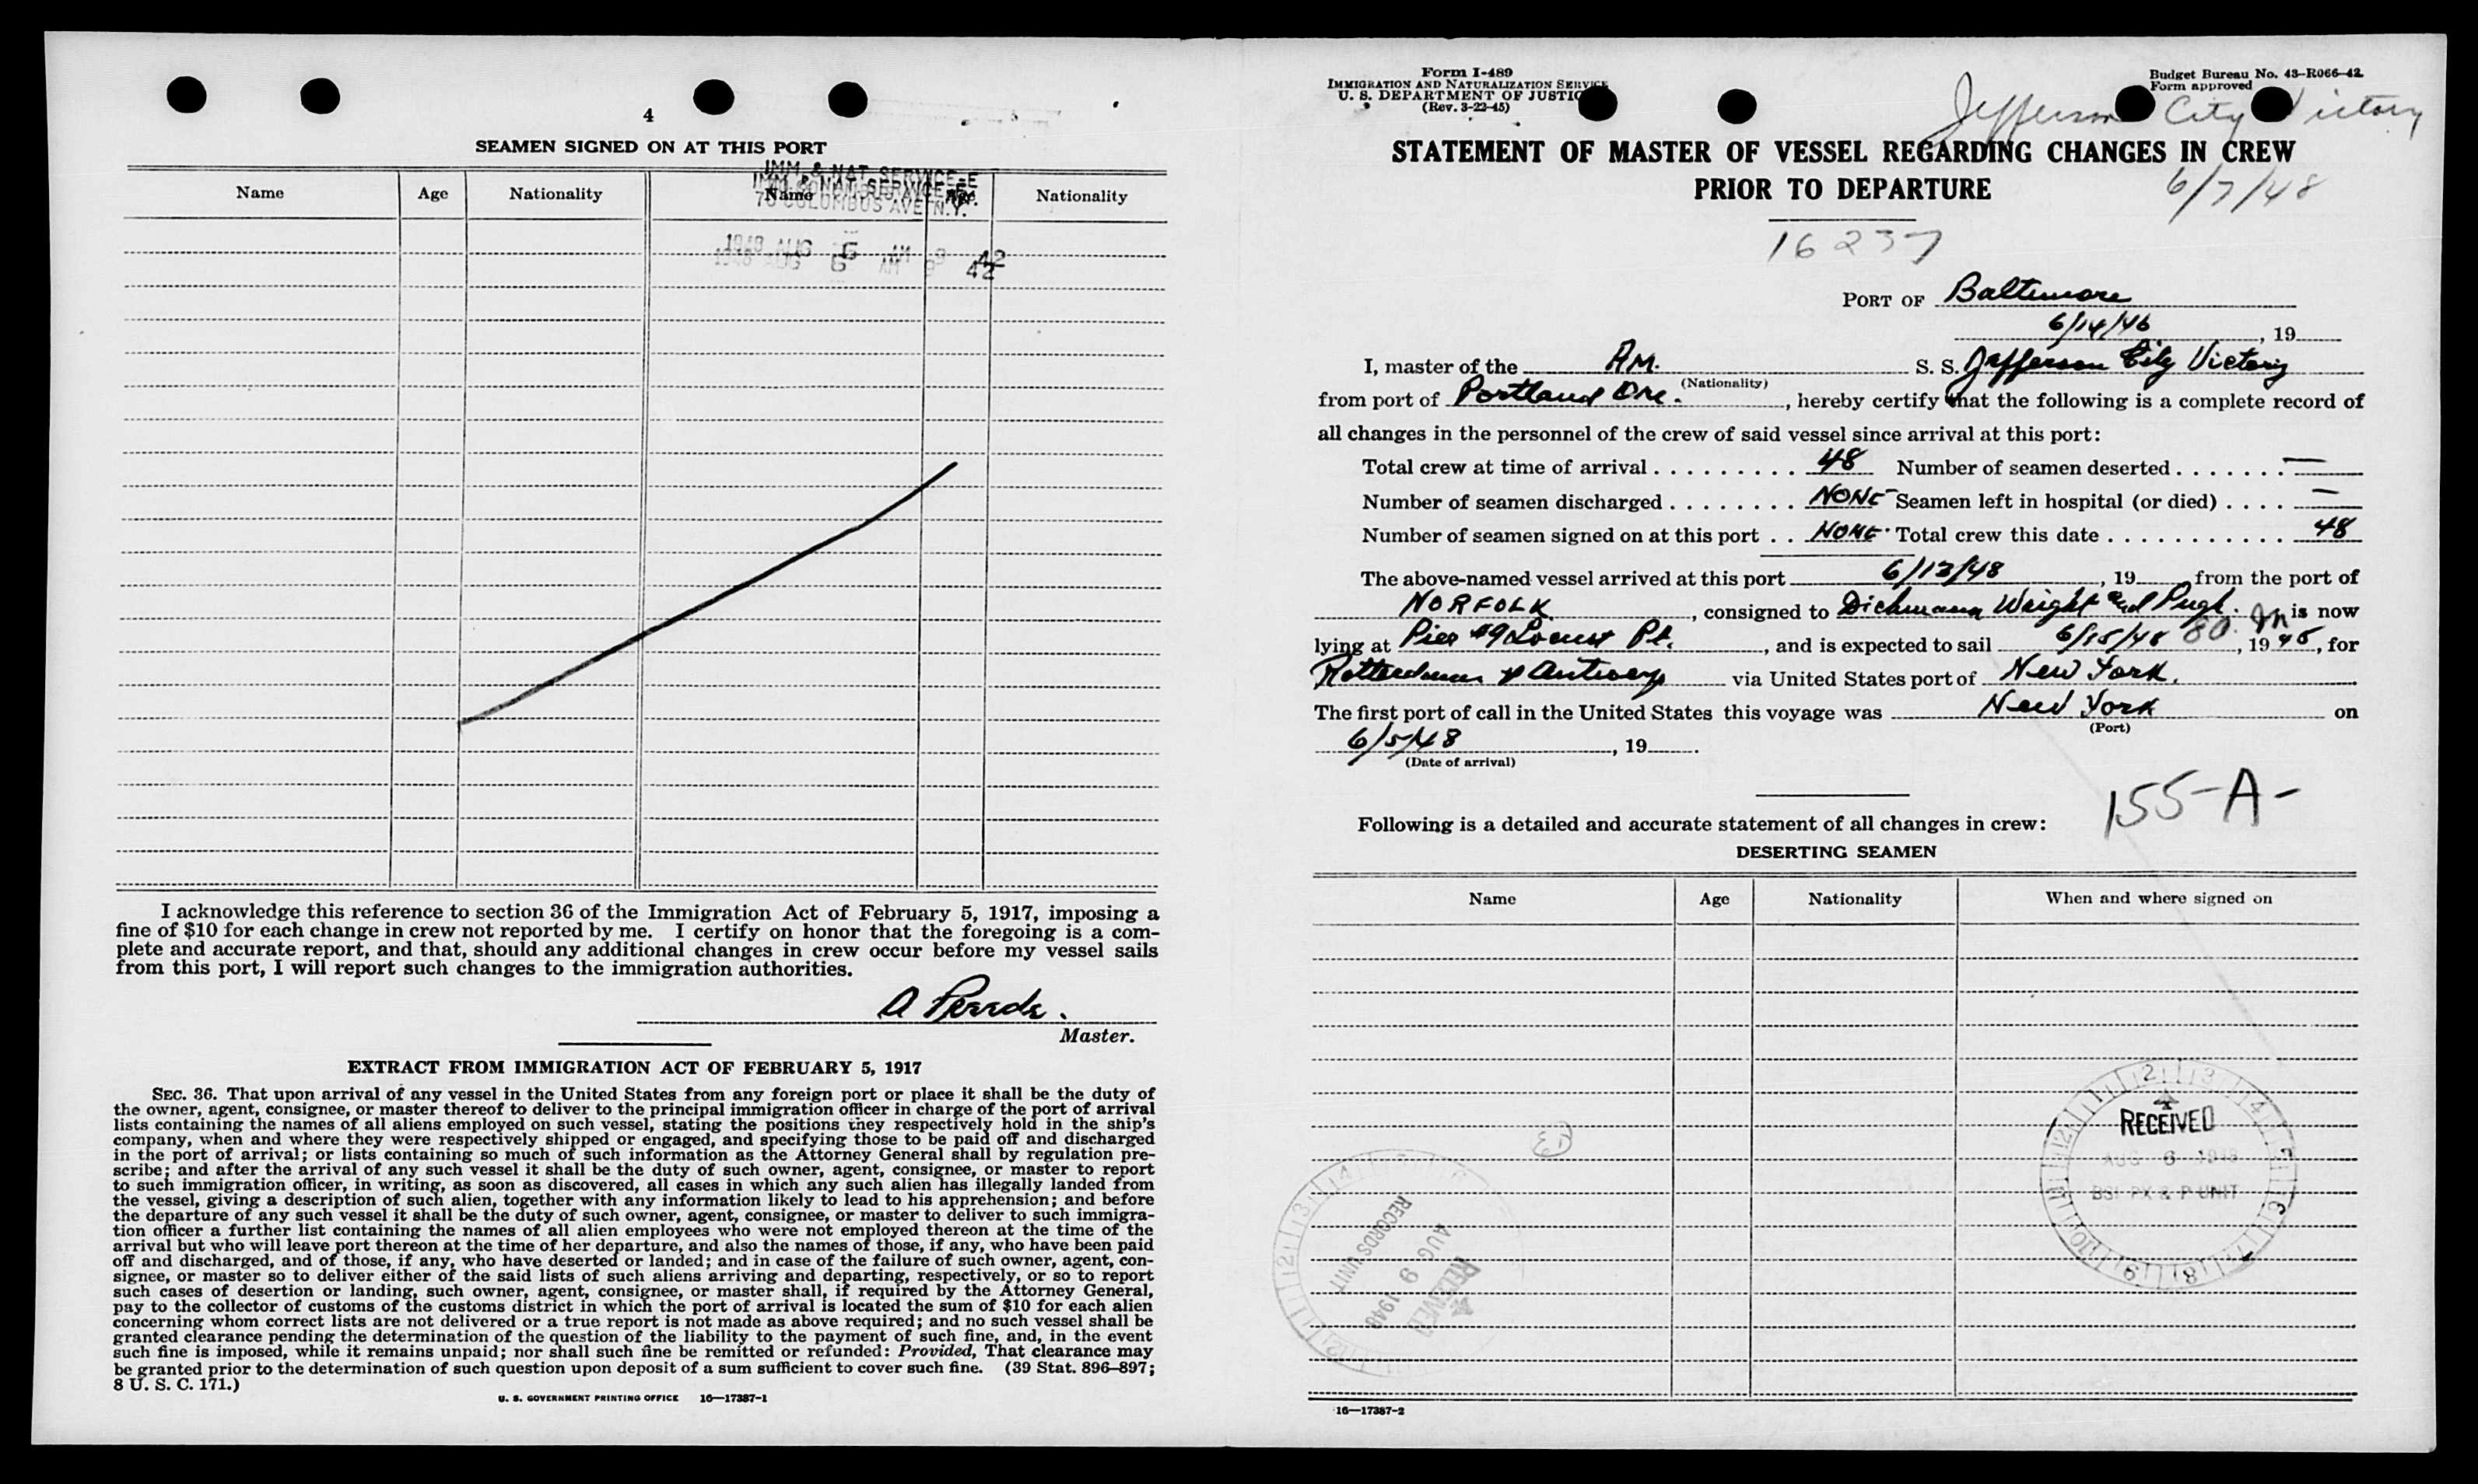 4
SEAMEN SIGNED ON AT THIS PORT
Name Age Nationality Name Age Nationality
IMM. & NAT. SERVICE-E
IMM. & NAT. SERVICE-E
70 COLUMBUS AVE. N.Y.
1948 AUG 6 AM 9 42
1948 AUG 6 AM 9 42
I acknowledge this reference to section 36 of the Immigration Act of February 5, 1917, imposing a
fine of $10 for each change in crew not reported by me. I certify on honor that the foregoing is a com-
plete and accurate report, and that, should any additional changes in crew occur before my vessel sails
from this port, I will report such changes to the immigration authorities.
A
Master.
EXTRACT FROM IMMIGRATION ACT OF FEBRUARY 5, 1917
SEC. 36. That upon arrival of any vessel in the United States from any foreign port or place it shall be the duty of
the owner, agent, consignee, or master thereof to deliver to the principal immigration officer in charge of the port of arrival
lists containing the names of all aliens employed on such vessel, stating the positions they respectively hold in the ship's
company, when and where they were respectively shipped or engaged, and specifying those to be paid off and discharged
in the port of arrival; or lists containing so much of such information as the Attorney General shall by regulation pre-
scribe; and after the arrival of any such vessel it shall be the duty of such owner, agent, consignee, or master to report
to such immigration officer, in writing, as soon as discovered, all cases in which any such alien has illegally landed from
the vessel, giving a description of such alien, together with any information likely to lead to his apprehension; and before
the departure of any such vessel it shall be the duty of such owner, agent, consignee, or master to deliver to such immigra-
tion officer a further list containing the names of all alien employees who were not employed thereon at the time of the
arrival but who will leave port thereon at the time of her departure, and also the names of those, if any, who have been paid
off and discharged, and of those, if any, who have deserted or landed; and in case of the failure of such owner, agent, con-
signee, or master so to deliver either of the said lists of such aliens arriving and departing, respectively, or so to report
such cases of desertion or landing, such owner, agent, consignee, or master shall, if required by the Attorney General,
pay to the collector of customs of the customs district in which the port of arrival is located the sum of $10 for each alien
concerning whom correct lists are not delivered or a true report is not made as above required; and no such vessel shall be
granted clearance pending the determination of the question of the liability to the payment of such fine, and, in the event
such fine is imposed, while it remains unpaid; nor shall such fine be remitted or refunded: Provided, That clearance may
be granted prior to the determination of such question upon deposit of a sum sufficient to cover such fine. (39 Stat. 896–897;
8 U. S. C. 171.)
U. S. GOVERNMENT PRINTING OFFICE 16—17387-1
Form I-489
IMMIGRATION AND NATURALIZATION SERVICE
U. S. DEPARTMENT OF JUSTICE
(Rev. 3-22-45)
Budget Bureau No. 43-R066-42
Form approved
Jefferson City Victory
STATEMENT OF MASTER OF VESSEL REGARDING CHANGES IN CREW
PRIOR TO DEPARTURE
6/7/48
16237
PORT OF Baltimore
6/14/48, 19
I, master of the Am. S. S. Jefferson City Victory
(Nationality)
from port of Portland Ore., hereby certify that the following is a complete record of
all changes in the personnel of the crew of said vessel since arrival at this port:
Total crew at time of arrival . . . . . . . . . 48 Number of seamen deserted . . . . . . . —
Number of seamen discharged . . . . . . . . NONE Seamen left in hospital (or died) . . . . —
Number of seamen signed on at this port . . NONE Total crew this date . . . . . . . . . . . . 48
The above-named vessel arrived at this port 6/13/48, 19 from the port of
NORFOLK, consigned to Dichmann Wright and Pugh. is now
lying at Pier #9 Locust Pt., and is expected to sail 6/15/48, 1948, for
Rotterdam & Antwerp via United States port of New York.
The first port of call in the United States this voyage was New York on
(Port)
6/5/48, 19.
(Date of arrival)
155-A-
Following is a detailed and accurate statement of all changes in crew:
DESERTING SEAMEN
Name Age Nationality When and where signed on
RECEIVED
AUG 6 1948
BSI PX & P UNIT
RECEIVED
AUG 9 1948
RECORDS UNIT
16—17387-2